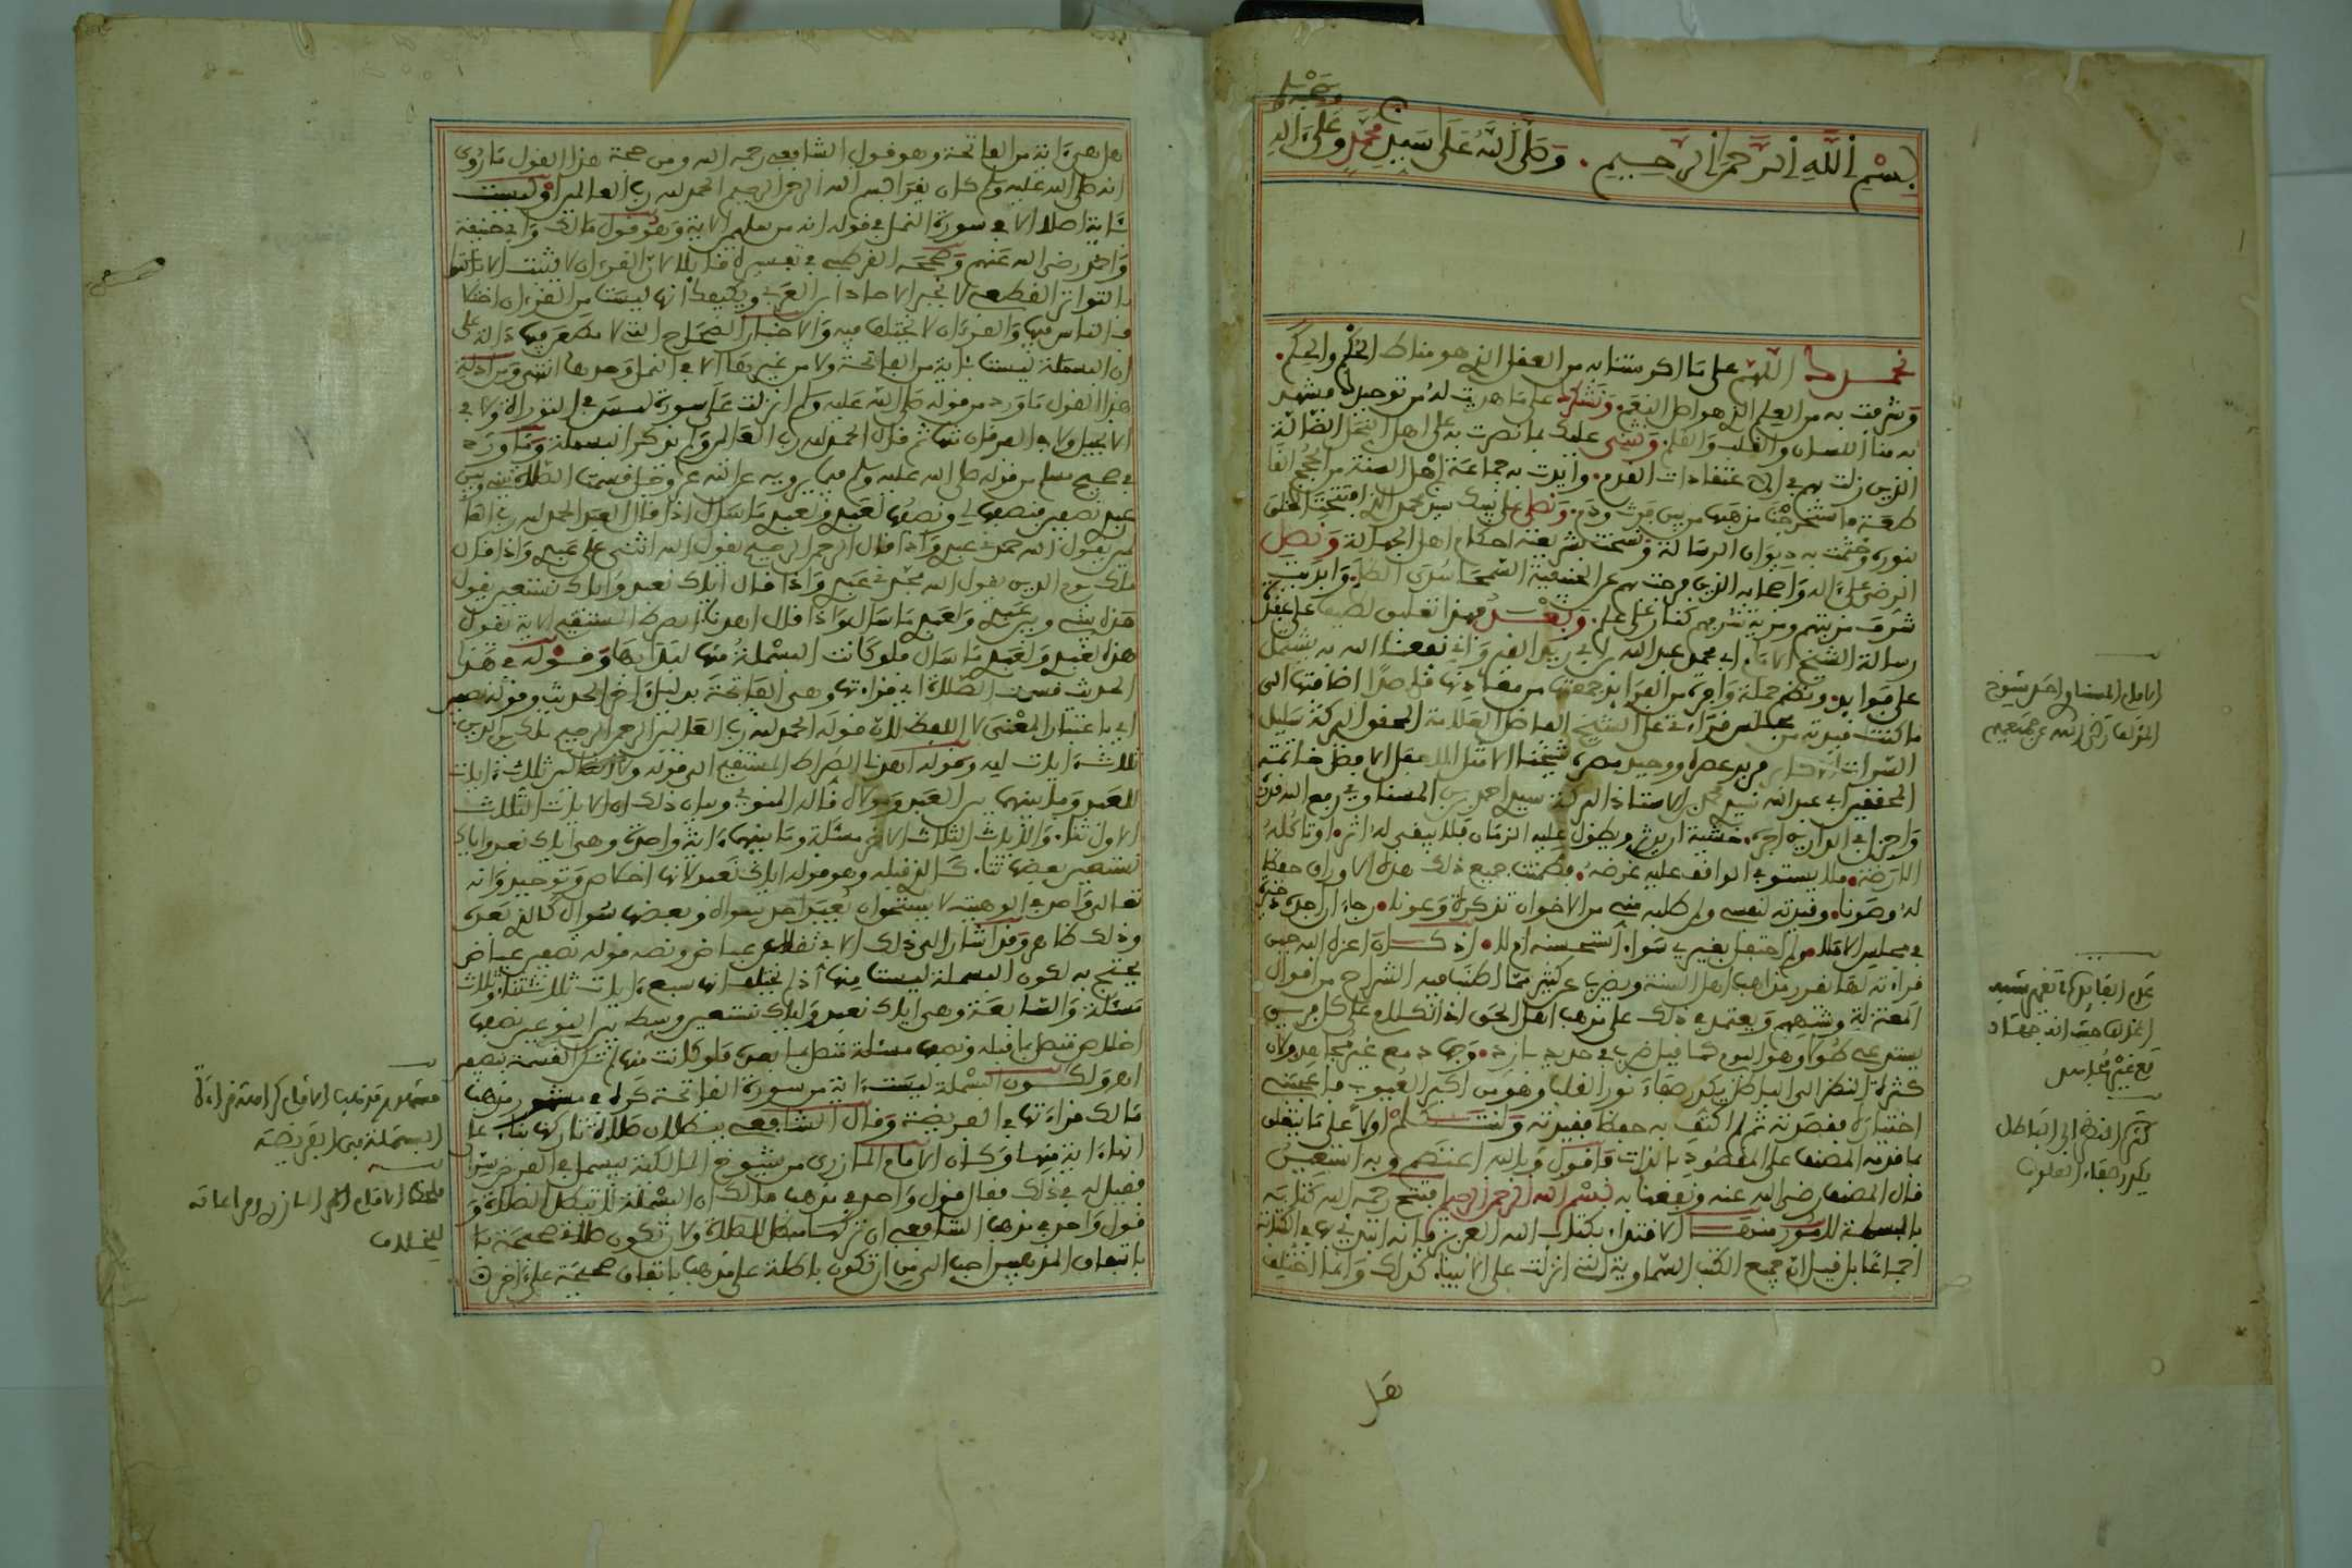 بسم الله الرحمن الرحيم . وصلى الله على سيدنا محمد وعلى ءاله
وصحبه وسلم
نحمدك اللهم على ما اكرمتنا به من العقل الذي هو مناط الحكم والحكم .
وشرفت به من العلم الذي هو اصل النعم . ونشكرك على ما هديت له من توحيدك فيشهد
به منا اللسان والقلب والقلم . ونثني عليك بما نصرت به على اهل النحل الضالة
الذين زلت بهم في اعتقادات القدم . وايدت به جماعة اهل السنة من الحجج القا
طعة ما استخرجت مذهبها من بين فرث ودم . ونصلي على نبيك سيدنا محمد الذي افتتحت الخلق
بنوره وختمت به ديوان الرسالة ونسخت بشريعته احكام اهل الجهالة ونصل
الرضى على ءاله واصحابه الذين
شرف مزيتهم ومزية شرفهم كنار على علم . وبعد فهذا تعليق لطيف على عقيدة
رسالة الشيخ الامام ابي محمد عبد الله بن ابي زيد القيرواني نفعنا الله به يشتمل
على فوايد . ونظم جملة وافرة من الفرايد جمعتها من مقيداتها قاصدا اضافتها الى
ما كنت قيدته من مجلس قراءتي على الشيخ الفاضل العلامة
فريد عصره ووحيد مصره شيخنا
المحققين ابي عبد الله سيدي محمد بن الاستاذ البركة سيدي احمد بن المسناوي رفع الله قدره
واجزل في الدارين اجره . خشية ان يدثر ويطول عليه الزمان فلا يبقى له اثر . او تاكله
الارضة . فلا يستوفي الواقف عليه غرضه . فضمنت جميع ذلك هذه الاوراق حفظا
له وصونا . وقيدته لنفسي ولمن طلبه مني من الاخوان تذكرة وعونا .
في مجلس الاملا من لم احتفل بغيره سواء استحسنه ام لا . اذ كان اعزه الله حين
قراءته لها يقرر مذاهب اهل السنة ويضرب عن كثير مما اطنب فيه الشراح من اقوال
المعتزلة وشبههم ويعتمد في ذلك على مذهب اهل الحق
وهو اليوم كما قيل ضرب في حديد بارد . وجهاد مع غير مجاهد ولان
كثرة النظر الى الباطل يكدر صفاء نور القلب وهو من اكبر العيوب
اختياره فقصرته ثم لم اكتف به حفظا فقيدته ولنتكلم اولا على ما يتعلق
بما قدمه المصنف على المقصود بالذات فاقول وبالله اعتصم وبه استعين
قال المصنف رضي الله عنه ونفعنا به بسم الله الرحمن الرحيم افتتح رحمه الله كتابه
بالبسملة لامور منها الاقتداء بكتاب الله العزيز فانه ابتدئ بها في الكتابة
اجماعا بل قيل ان جميع الكتب السماوية التي انزلت على الانبياء كذلك وانما اختلف
هل
الامام المسناوي احد شيوخ
المؤلف رضي الله عن جميعهم
كثرة النظر الى الباطل
يكدر صفاء القلوب
هل هي ءاية من الفاتحة وهو قول الشافعي رحمه الله ومن حجة هذا القول ما روي
انه صلى الله عليه وسلم كان يقرا بسم الله الرحمن الرحيم الحمد لله رب العالمين او ليست
بئاية اصلا الا في سورة النمل في قوله انه من سليمن الاية وهو قول مالك وابي حنيفة
واحمد رضي الله عنهم وصححه القرطبي في تفسيره قايلا لان القرءان لا يثبت الا
بالتواتر القطعي لا بخبر الاحاد ابن العربي ويكفيك انها ليست من القرءان اختلا
ف الناس فيها والقرءان لا يختلف فيه والاخبار الصحاح التي لا مطعن فيها دالة على
ان البسملة ليست بئاية من الفاتحة ولا من غيرها الا في النمل وحدها انتهى ومن ادلة
هذا القول ما ورد من قوله صلى الله عليه وسلم انزلت علي سورة ليس في التوراة ولا في
الانجيل ولا في الفرقان مثلها ثم قال الحمد لله رب العالمين ولم يذكر البسملة وما ورد
في صحيح مسلم من قوله صلى الله عليه وسلم فيما يرويه عن الله عز وجل قسمت الصلاة بيني وبين
عبدي نصفين فنصفها لي ونصفها لعبدي ولعبدي ما سال اذا قال العبد الحمد لله رب العا
لمين يقول الله حمدني عبدي واذا قال الرحمن الرحيم يقول الله اثنى علي عبدي واذا قال
ملك يوم الدين يقول الله مجدني عبدي واذا قال اياك نعبد واياك نستعين يقول
هذه بيني وبين عبدي ولعبدي ما سال واذا قال اهدنا الصراط المستقيم الاية يقول
هذه لعبدي ولعبدي ما سال فلو كانت البسملة منها لبدا بها وقوله في هذا
الحديث قسمت الصلاة اي قراءتها وهي الفاتحة بدليل ءاخر الحديث وقوله نصفين
اي باعتبار المعنى لا اللفظ لان قوله الحمد لله رب العالمين الرحمن الرحيم ملك يوم الدين
ثلاث ءايات لله وقوله اهدنا الصراط المستقيم الى قوله ولا الضالين ثلاث ءايات
للعبد وما بينهما بين العبد ومولاه قاله المنوفي وبيان ذلك ان الايات الثلاث
الاول ثناء . والايات الثلاث الاخر مسئلة وما بينهما ءاية واحدة وهي اياك نعبد واياك
نستعين بعضها ثناء . كالذي قبله وهو قوله اياك نعبد لانها اخلاص وتوحيد وانه
تعالى واحد في الوهيته لا يستحق ان يعبد احد سواه وبعضها سؤال كالذي بعده
وذلك ظاهر وقد اشار الى ذلك عياض ونصه قوله نصفين عياض
يحتج به لكون البسملة ليست منها اذ لم يختلف انها سبع ءايات ثلاث ثناء وثلاث
مسئلة والسابعة وهي اياك نعبد واياك نستعين وسط بين النوعين نصفها
اخلاص متصل بما قبله ونصفها مسئلة متصل بما بعده فلو كانت منها لم تكن القسمة نصفين
اهـ ولكون البسملة ليست ءاية من سورة الفاتحة كره في مشهور مذهب
مالك قراءتها في الفريضة وقال الشافعي ببطلان صلاة تاركها بناء على
انها ءاية منها وكان الامام المازري من شيوخ المالكية يبسمل في الفرض سرا
فقيل له في ذلك فقال قول واحد في مذهب مالك ان البسملة لا تبطل الصلاة و
قول واحد في مذهب الشافعي ان تركها مبطل للصلاة ولان تكون صلاتي صحيحة
باتفاق المذهبين احب الي من ان تكون باطلة على مذهب باتفاق صحيحة على ءاخر
مشهور مذهب الامام كراهة قراءة
البسملة في الفريضة
للخلاف